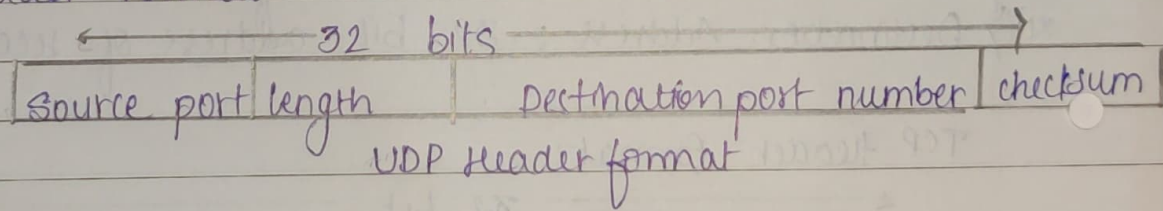 32 bits
Source port length Dectination port number checksum
UDP Header format